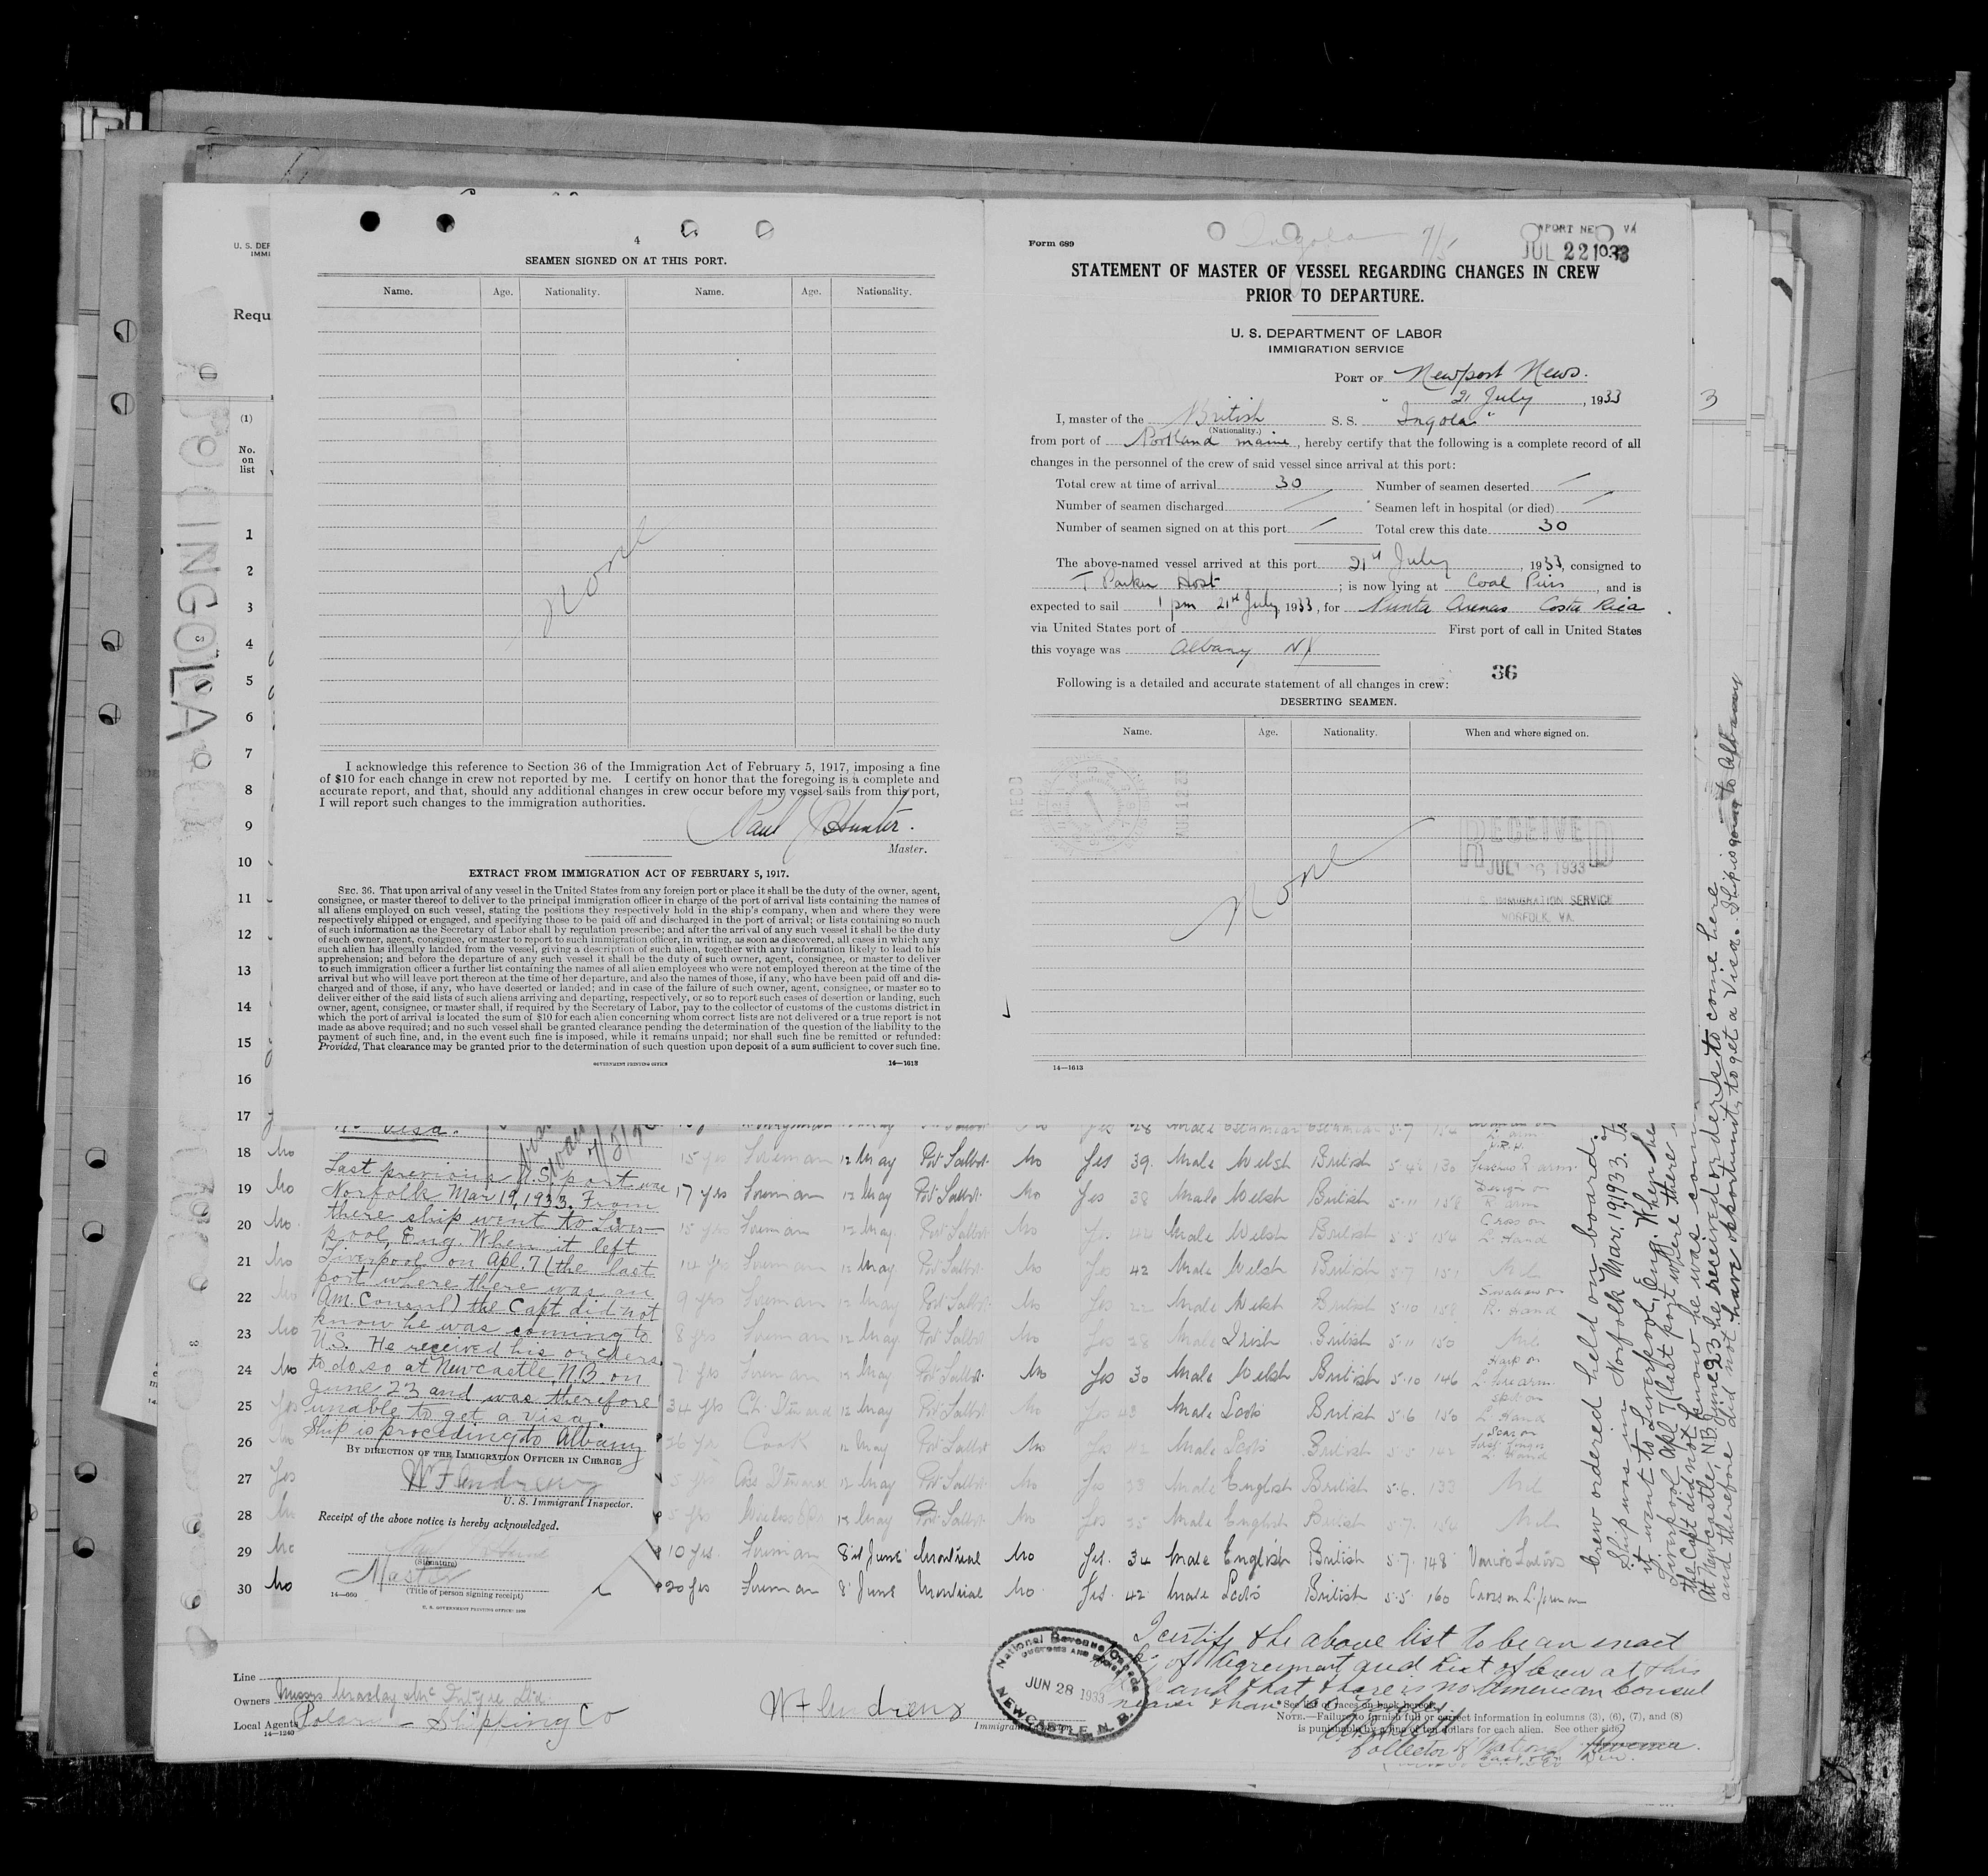 4
SEAMEN SIGNED ON AT THIS PORT.
Name. Age. Nationality. Name. Age. Nationality.
None
I acknowledge this reference to Section 36 of the Immigration Act of February 5, 1917, imposing a fine
of $10 for each change in crew not reported by me. I certify on honor that the foregoing is a complete and
accurate report, and that, should any additional changes in crew occur before my vessel sails from this port,
I will report such changes to the immigration authorities.
Paul J Hunter.
Master.
EXTRACT FROM IMMIGRATION ACT OF FEBRUARY 5, 1917.
SEC. 36. That upon arrival of any vessel in the United States from any foreign port or place it shall be the duty of the owner, agent,
consignee, or master thereof to deliver to the principal immigration officer in charge of the port of arrival lists containing the names of
all aliens employed on such vessel, stating the positions they respectively hold in the ship's company, when and where they were
respectively shipped or engaged, and specifying those to be paid off and discharged in the port of arrival; or lists containing so much
of such information as the Secretary of Labor shall by regulation prescribe; and after the arrival of any such vessel it shall be the duty
of such owner, agent, consignee, or master to report to such immigration officer, in writing, as soon as discovered, all cases in which any
such alien has illegally landed from the vessel, giving a description of such alien, together with any information likely to lead to his
apprehension; and before the departure of any such vessel it shall be the duty of such owner, agent, consignee, or master to deliver
to such immigration officer a further list containing the names of all alien employees who were not employed thereon at the time of the
arrival but who will leave port thereon at the time of her departure, and also the names of those, if any, who have been paid off and dis-
charged and of those, if any, who have deserted or landed; and in case of the failure of such owner, agent, consignee, or master so to
deliver either of the said lists of such aliens arriving and departing, respectively, or so to report such cases of desertion or landing, such
owner, agent, consignee, or master shall, if required by the Secretary of Labor, pay to the collector of customs of the customs district in
which the port of arrival is located the sum of $10 for each alien concerning whom correct lists are not delivered or a true report is not
made as above required; and no such vessel shall be granted clearance pending the determination of the question of the liability to the
payment of such fine, and, in the event such fine is imposed, while it remains unpaid; nor shall such fine be remitted or refunded:
Provided, That clearance may be granted prior to the determination of such question upon deposit of a sum sufficient to cover such fine.
GOVERNMENT PRINTING OFFICE 14—1613
Form 689
Ingola 7/5
JUL 22 1933
STATEMENT OF MASTER OF VESSEL REGARDING CHANGES IN CREW
PRIOR TO DEPARTURE.
U. S. DEPARTMENT OF LABOR
IMMIGRATION SERVICE
PORT OF Newport News.
21 July, 1933
I, master of the British S. S. "Ingola"
(Nationality.)
from port of Portland maine, hereby certify that the following is a complete record of all
changes in the personnel of the crew of said vessel since arrival at this port:
Total crew at time of arrival 30 Number of seamen deserted /
Number of seamen discharged / Seamen left in hospital (or died) /
Number of seamen signed on at this port / Total crew this date 30
The above-named vessel arrived at this port 21st July, 1933, consigned to
T Parker Host; is now lying at Coal Piers, and is
expected to sail 1 pm 21st July, 1933, for Punta Arenas Costa Rica.
via United States port of First port of call in United States
this voyage was Albany NY
36
Following is a detailed and accurate statement of all changes in crew:
DESERTING SEAMEN.
Name. Age. Nationality. When and where signed on.
RECD
None
RECEIVED
JUL 26 1933
U. S. IMMIGRATION SERVICE
NORFOLK, VA.
14—1613
3
U. S. DEP
IMMI
Requ
(1)
No.
on
list
1
2
3
4
5
6
7
8
9
10
11
12
13
14
15
16
17
INGOLA
No visa.
Last previous U.S. port was
Norfolk Mar 19, 1933. From
there ship went to Liver-
pool, Eng. When it left
Liverpool on Apl. 7 (the last
port where there was an
Am. Consul) the Capt did not
know he was coming to
U.S. He received his orders
to do so at Newcastle NB on
June 23 and was therefore
unable to get a visa.
Ship is proceeding to Albany
BY DIRECTION OF THE IMMIGRATION OFFICER IN CHARGE
W F Andrews
U. S. Immigrant Inspector.
Receipt of the above notice is hereby acknowledged.
(Signature)
Master
(Title of person signing receipt)
14—660
U. S. GOVERNMENT PRINTING OFFICE
18 No 15 yrs Fireman 12 May Port Talbot No Yes 39 Male Welsh British 5-4½ 130 R arm
19 No 17 yrs Fireman 12 May Port Talbot No Yes 38 Male Welsh British 5-11 158 Design on R arm
20 No 15 yrs Fireman 12 May Port Talbot No Yes 44 Male Welsh British 5-5 154 Cross on L. Hand
21 No 14 yrs Fireman 12 May Port Talbot No Yes 42 Male Welsh British 5-7 151 Nil
22 No 9 yrs Fireman 12 May Port Talbot No Yes 22 Male Welsh British 5-10 158 Swallow on R. Hand
23 No 8 yrs Fireman 12 May Port Talbot No Yes 28 Male Irish British 5-11 150 Nil
24 No 7 yrs Fireman 12 May Port Talbot No Yes 30 Male Welsh British 5-10 146 Harp on L. forearm
25 Yes 34 yrs Ch. Steward 12 May Port Talbot No Yes 43 Male Scots British 5-6 150 Spot on L Hand
26 No 26 yrs Cook 12 May Port Talbot No Yes Male Scots British 5-5 142 Scar on First finger L Hand
27 Yes 5 yrs Ass Steward 12 May Port Talbot No Yes 38 Male English British 5-6 133 Nil
28 No 5 yrs Wireless Opr 12 May Port Talbot No Yes 25 Male English British 5-7 154 Nil
29 No 10 yrs Fireman 8th June Montreal No Yes 34 Male English British 5-7 148 Various Tattoos
30 No 20 yrs Fireman 8 June Montreal No Yes 42 Male Scots British 5-5 160 Cross on L. forearm
Crew ordered held on board.
Ship was in Norfolk Mar. 19, 1933.
it went to Liverpool, Eng. When he
Liverpool Apl 7 (last port where there
the Capt did not know he was com
At Newcastle, NB June 23 he received orders to come here
and therefore did not have opportunity to get a Visa. Ship is going to Albany
I certify the above list to be an exact
copy of Agreement and List of Crew at this
and that there is no American Consul
nearer than
Collector of National Revenue
National Revenue Canada
CUSTOMS AND EXCISE
JUN 28 1933
NEWCASTLE, N. B.
Line
Owners Messrs Maclay & McIntyre Ltd
Local Agents Polaris Shipping Co
14—1240
W F Andrews
Immigrant
See list of races on back hereof.
NOTE.—Failure to furnish full or correct information in columns (3), (6), (7), and (8)
is punishable by a fine of ten dollars for each alien. See other side.